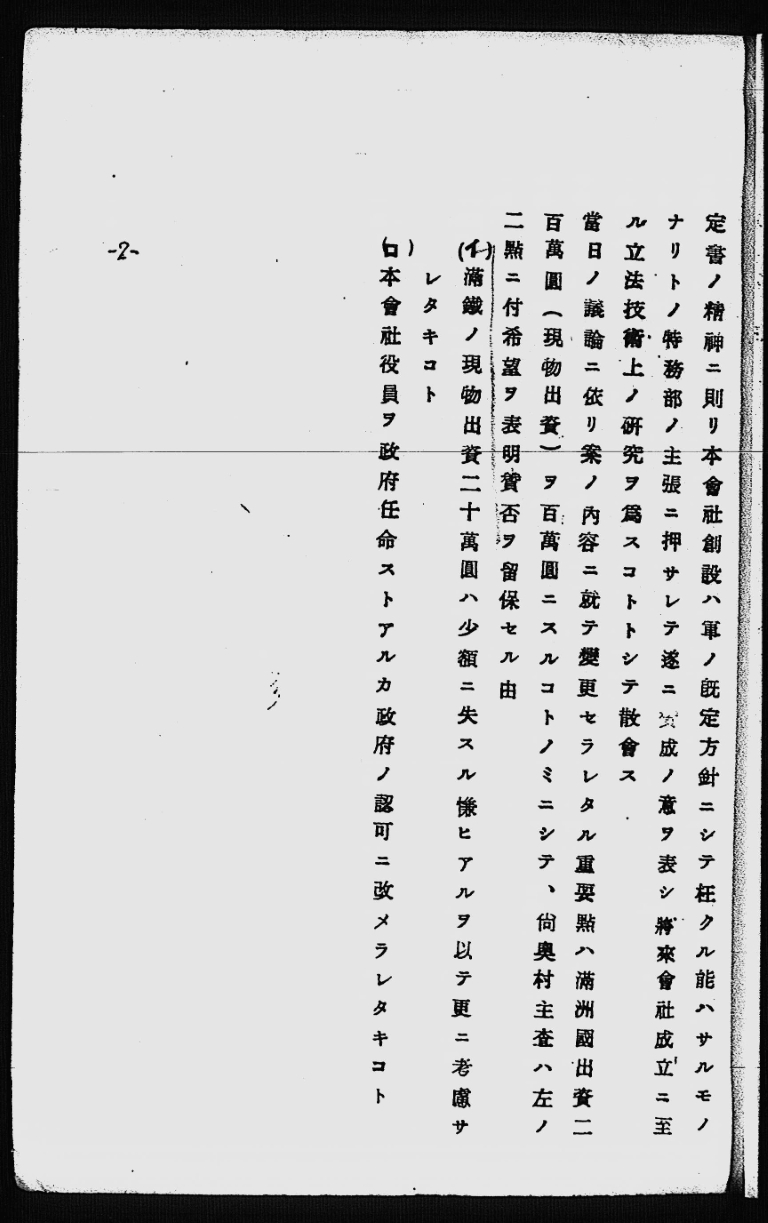 定書ノ精神ニ則リ本會社創設ハ軍ノ既定方針ニシテ枉クル能ハサルモノ
ナリトノ特務部ノ主張ニ押サレテ遂ニ賛成ノ意ヲ表シ將來會社成立ニ至
ル立法技術上ノ研究ヲ爲スコトトシテ散會ス
當日ノ議論ニ依リ案ノ內容ニ就テ變更セラレタル重要點ハ滿洲國出資二
百萬圓(現物出資)ヲ百萬圓ニスルコトノミニシテ、尙奧村主査ハ左ノ
二點ニ付希望ヲ表明賛否ヲ留保セル由
(イ)滿鐵ノ現物出資二十萬圓ハ少額ニ失スル慊ヒアルヲ以テ更ニ考慮サ
レタキコト
(ロ)本會社役員ヲ政府任命ストアルカ政府ノ認可ニ改メラレタキコト
-2-